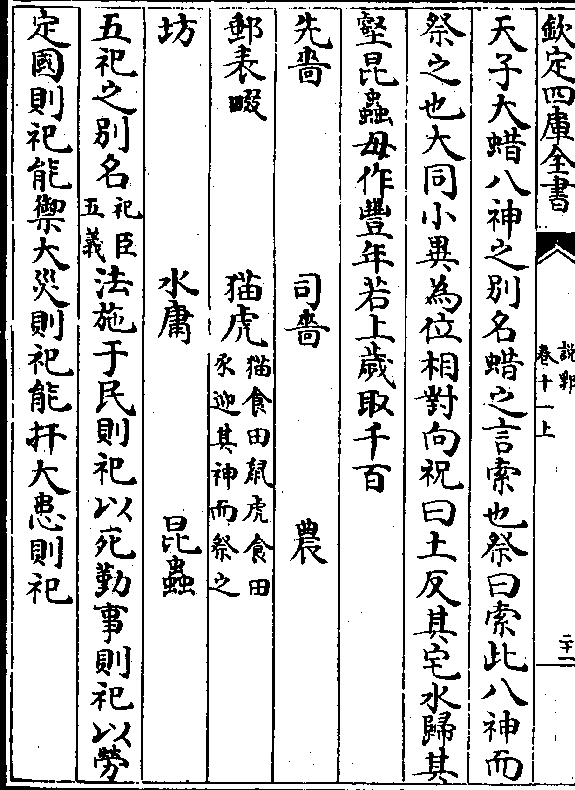 欽定四庫全書
說郛
卷十一上
天子大蜡八神之别名蜡之言索也祭曰索此八神而
祭之也大同小異為位相對向祝曰土反其宅水歸其
壑昆蟲毋作豐年若上歲取千百
先嗇 司嗇 農
郵表畷 猫虎 猫食田鼠虎食田豕迎其神而祭之
坊 水庸 昆蟲
五祀之别名祀臣五義法施于民則祀以死勤事則祀以勞
定國則祀能禦大災則祀能扞大患則祀